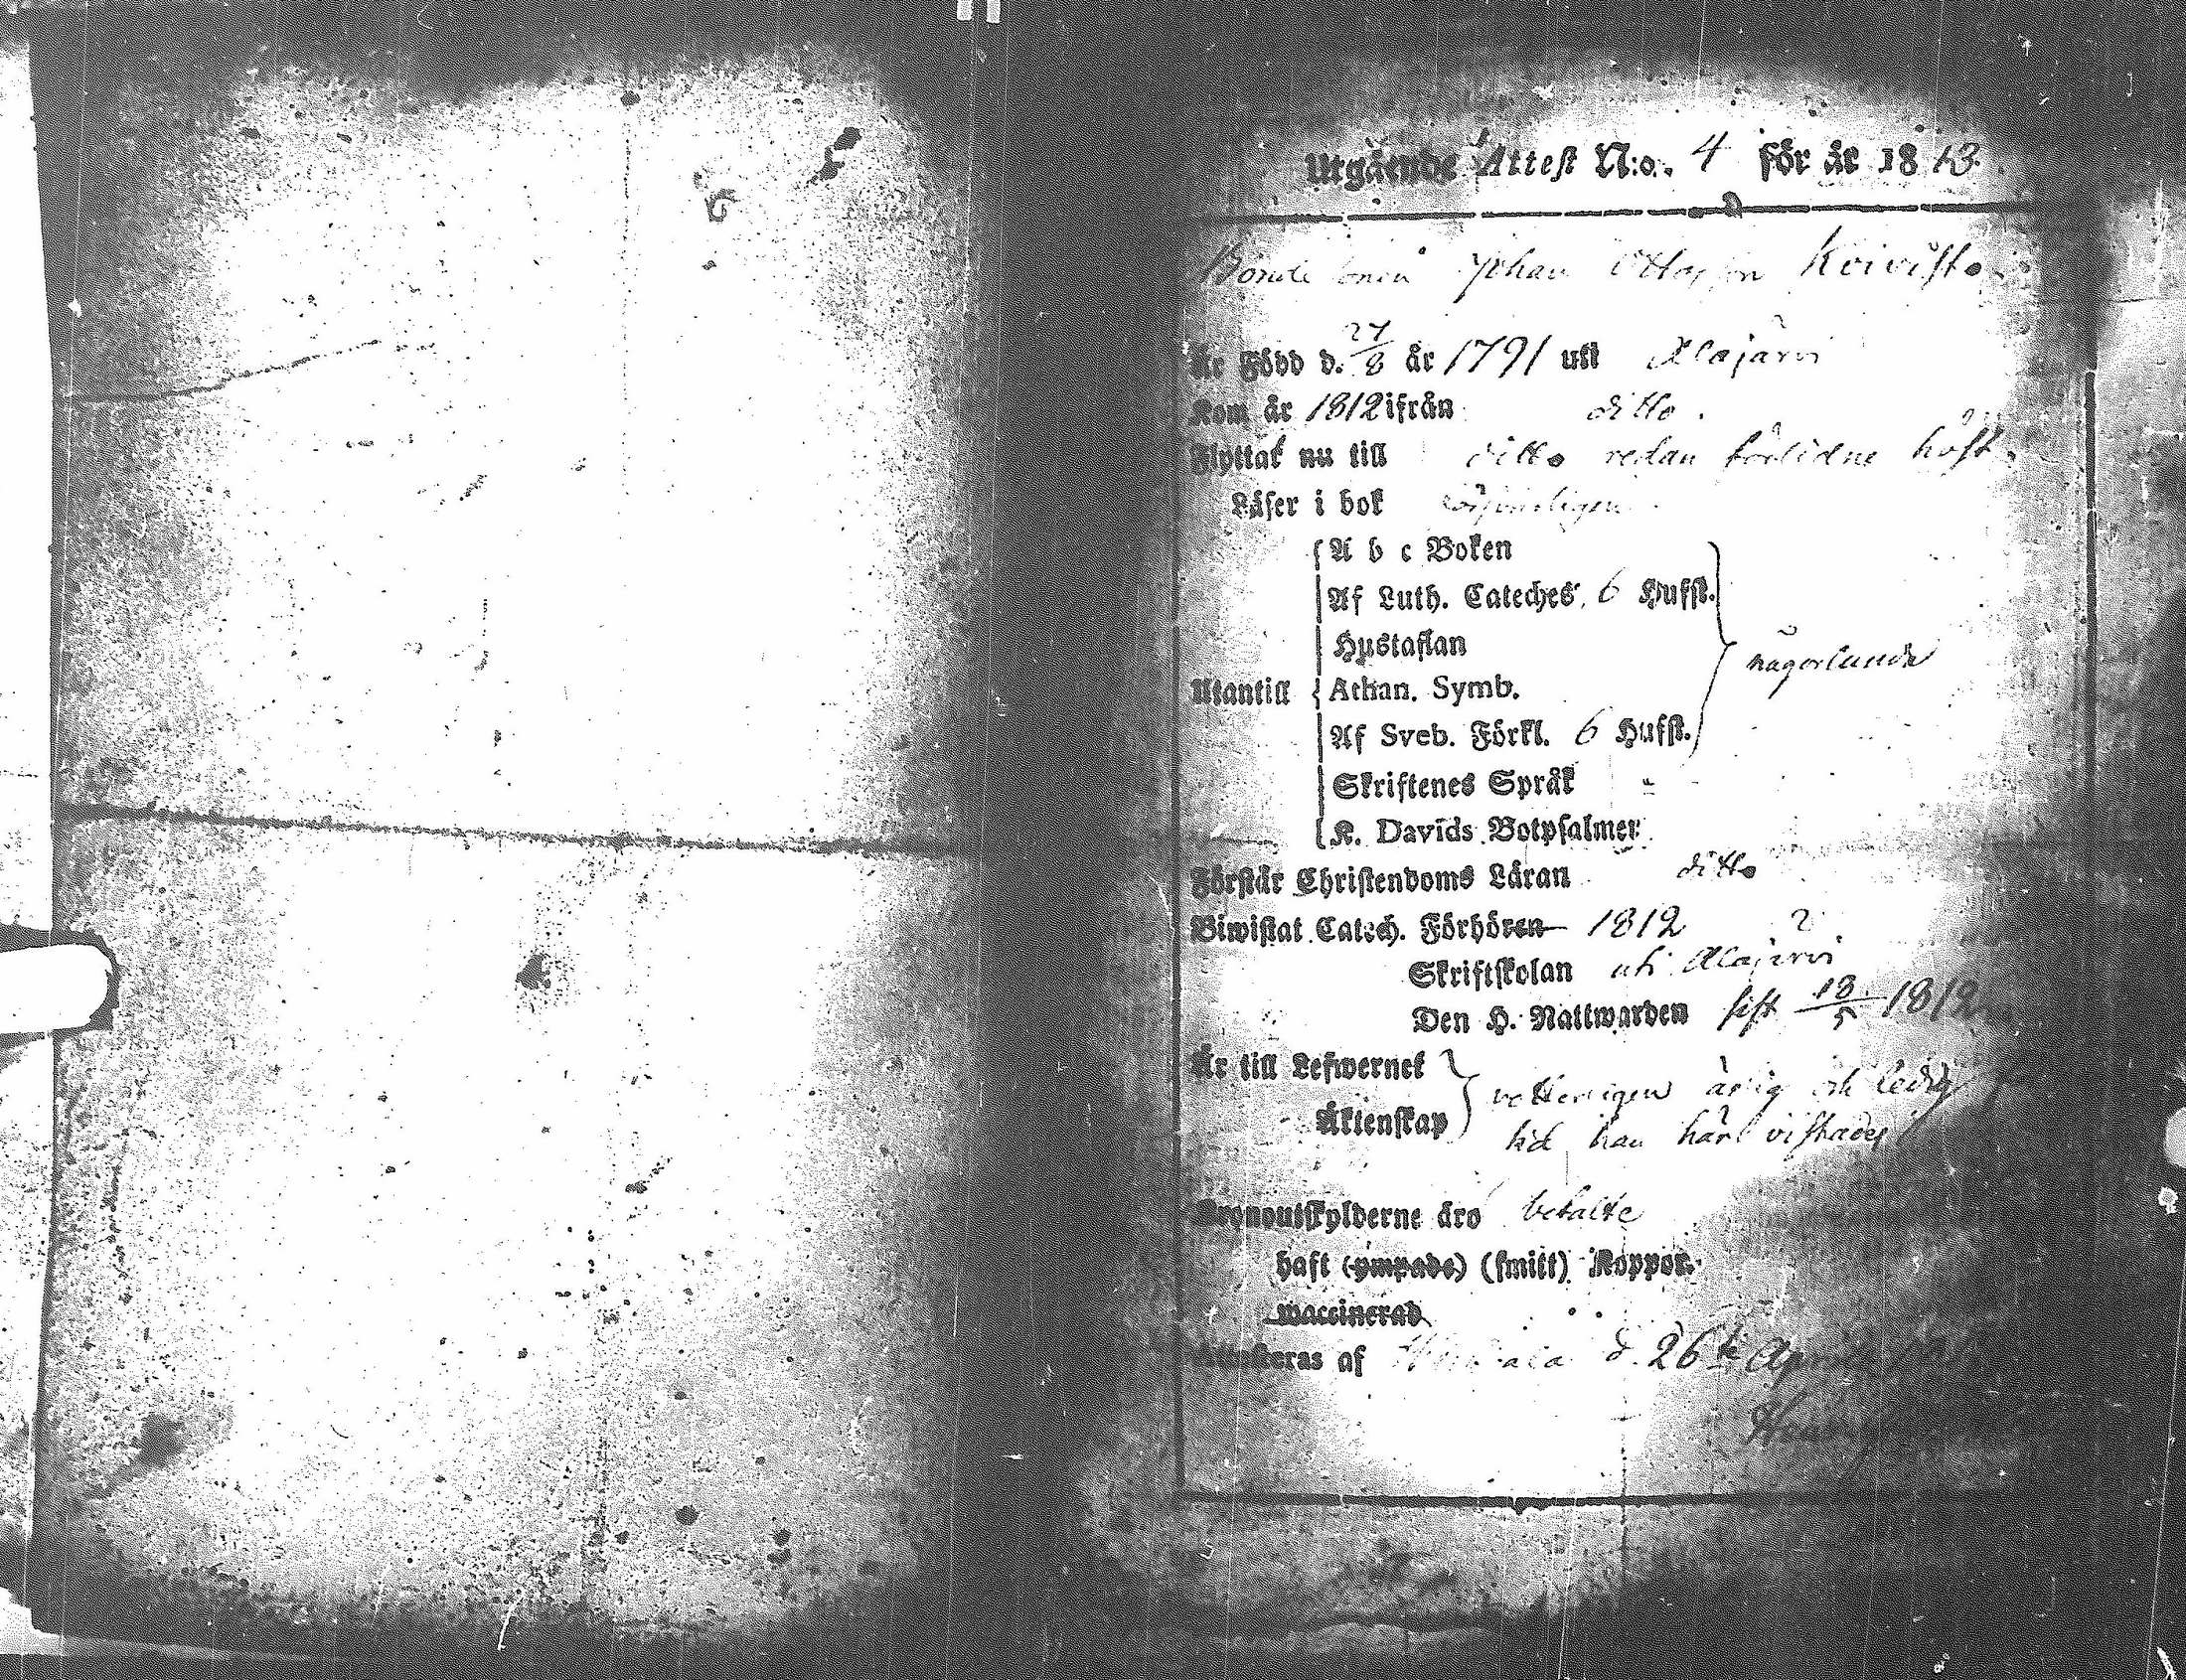 Utgående Attest N:o. 4 för år 1813.
Bonde sonen Johan Ottosson Koivisto
Är Född d. 27/8 år 1791 uti Alajärvi
Kom år 1812 ifrån ditto.
Flyttat nu till ditto redan förlidne höst.
Läser i bok
A b c Boken
Af Luth. Cateches. 6 Hufst.
Hustaflan
någorlunda
Utantill Athan. Symb.
Af Sveb. Förkl. 6 Hufst.
Skriftenes Språk
K. Davids Botpsalmer
Förstår Christendoms Läran ditto
Biwistat Catech. Förhören 1812 ?
Skriftskolan uti Alajärvi
Den H. Nattwarden sist 18/5 1812
Är till Lefwernet
Äktenskap
vetterligen ärlig och ledig
tid han här vistades
Kronoutskylderne äro betalte
haft (ympade) (smitt) Koppor.
waccinerad
Attesteras af d. 26te April